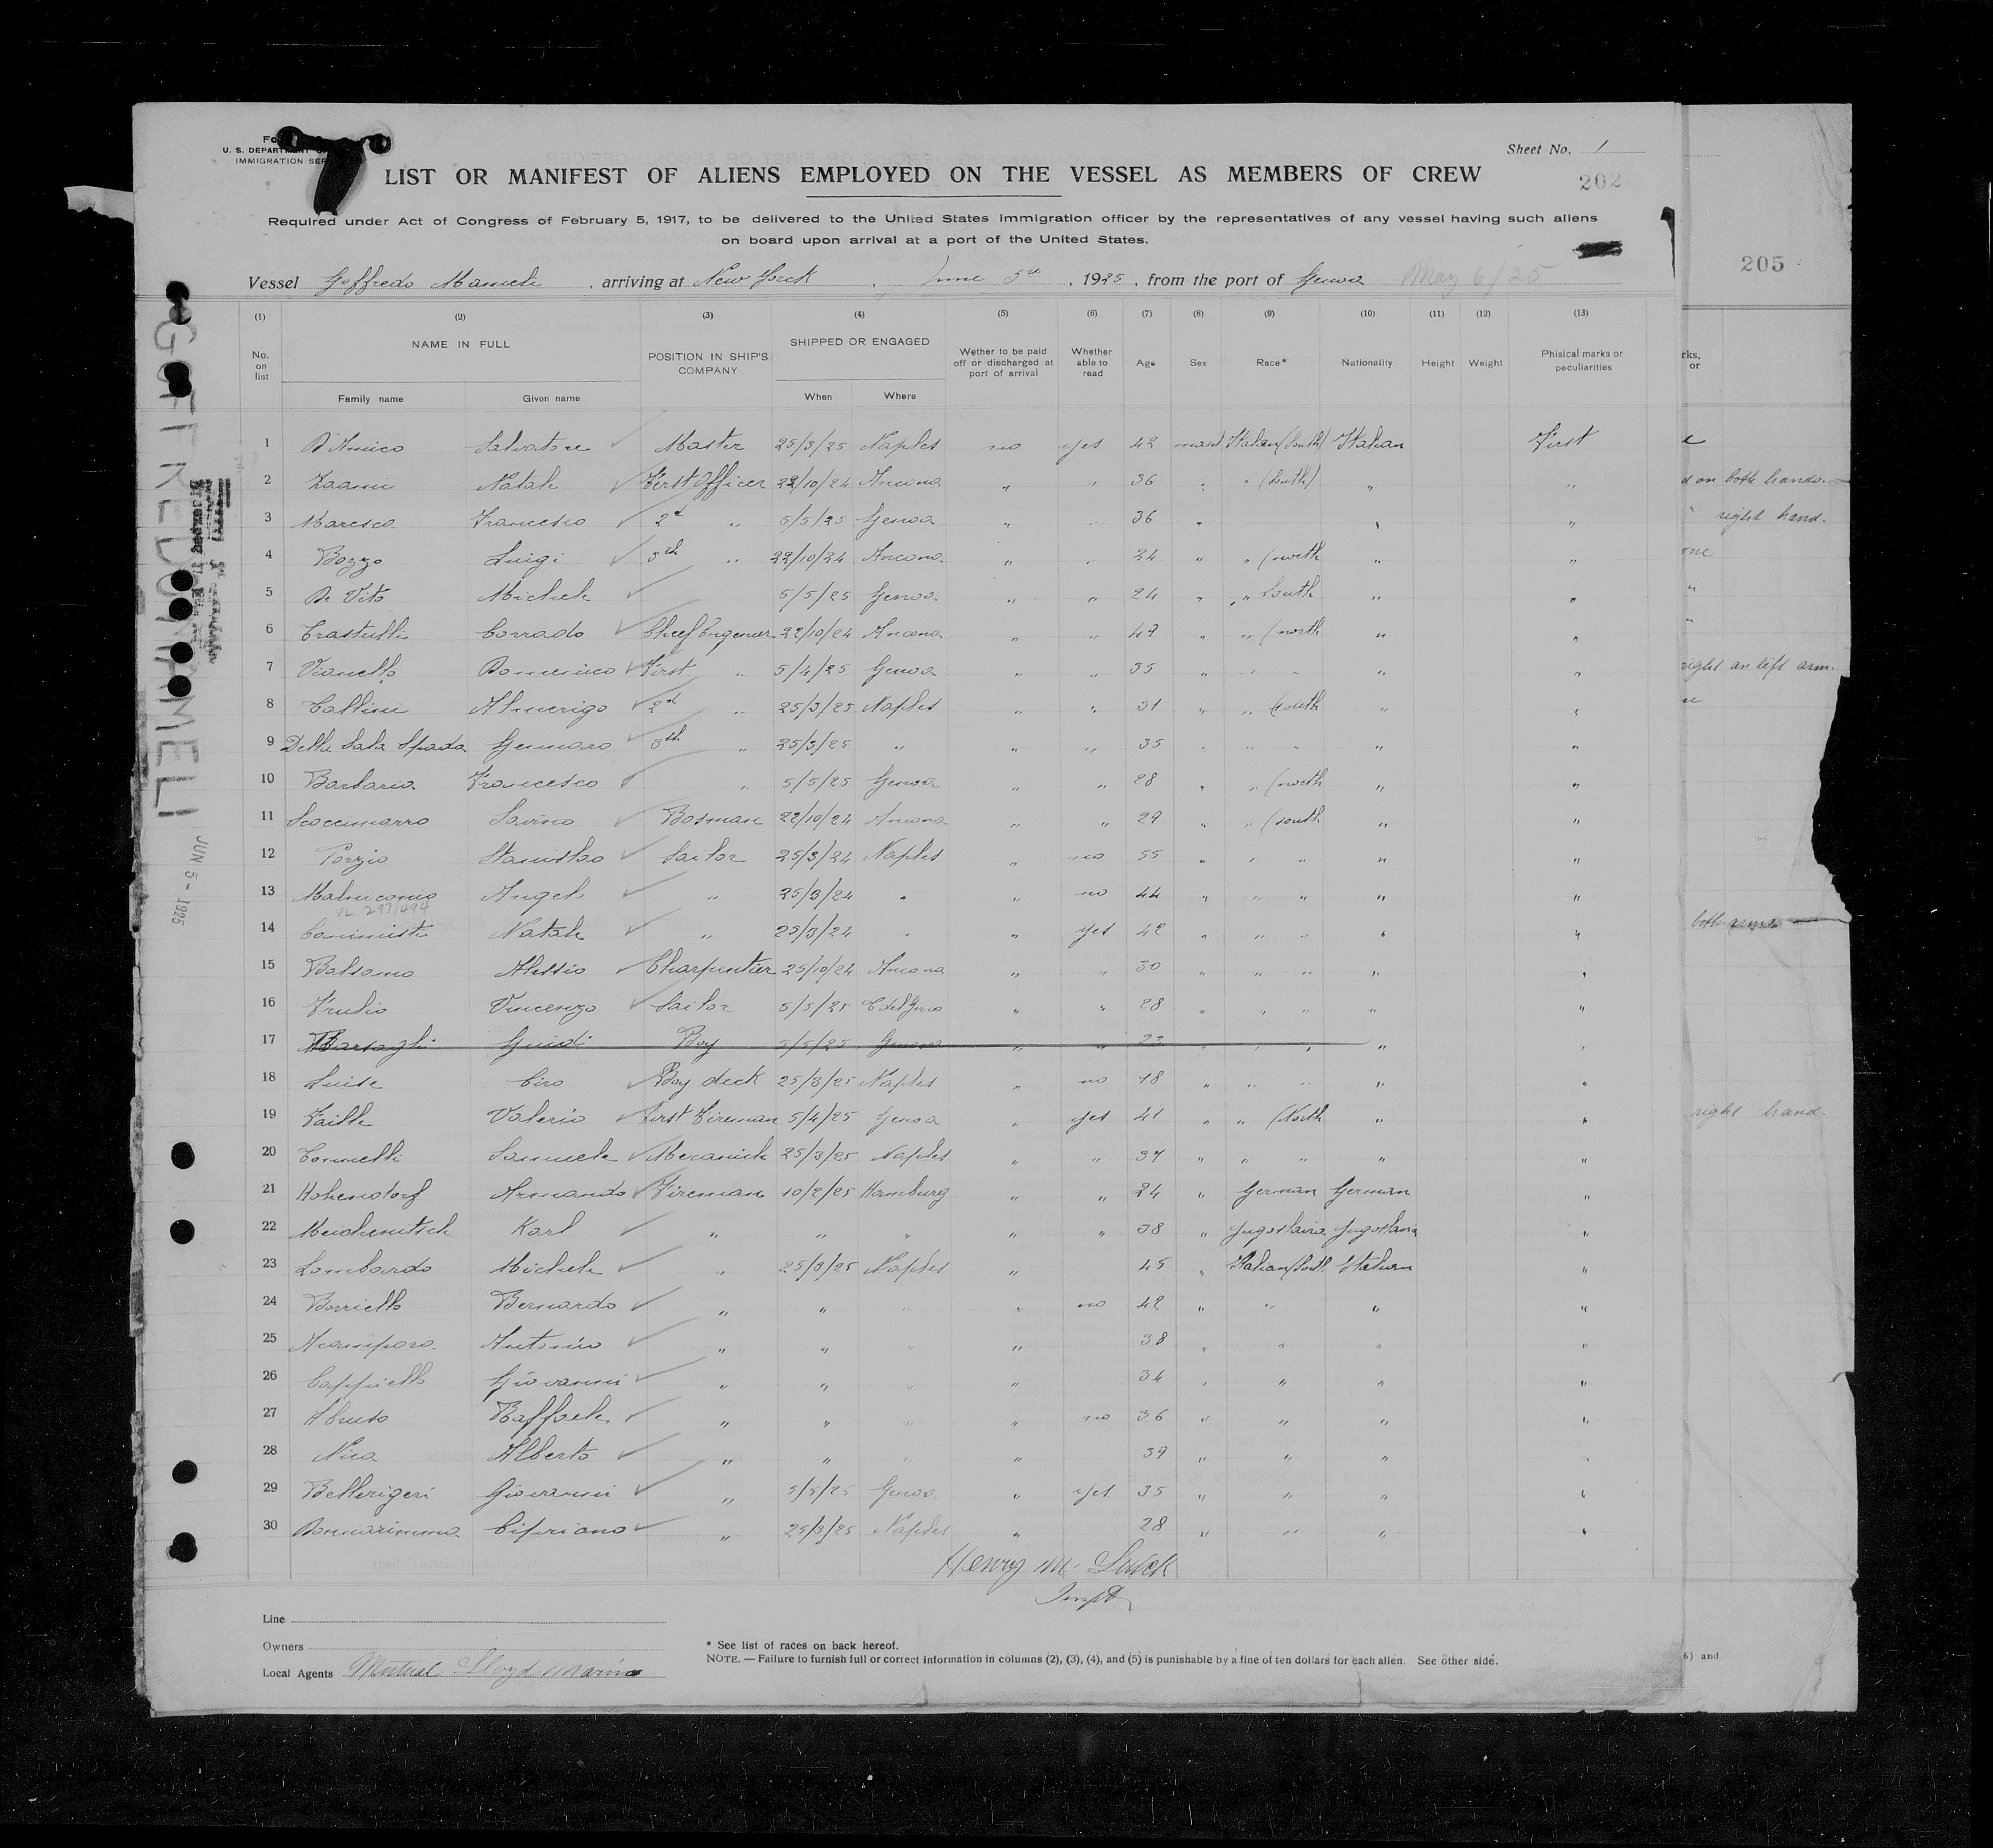 U. S. DEPARTMENT
IMMIGRATION SER
Sheet No. 1
LIST OR MANIFEST OF ALIENS EMPLOYED ON THE VESSEL AS MEMBERS OF CREW
202
Required under Act of Congress of February 5, 1917, to be delivered to the United States immigration officer by the representatives of any vessel having such aliens
on board upon arrival at a port of the United States.
205
Vessel Goffredo Mameli , arriving at New York , June 5th , 1925 , from the port of Genoa May 6/25
(1) (2) (3) (4) (5) (6) (7) (8) (9) (10) (11) (12) (13)
No. on list NAME IN FULL POSITION IN SHIP'S COMPANY SHIPPED OR ENGAGED Wether to be paid off or discharged at port of arrival Whether able to read Age Sex Race* Nationality Height Weight Phisical marks or peculiarities
Family name Given name When Where
1 D'Amico Salvatore Master 25/3/25 Naples no yes 42 Italian (South) Italian First
2 Natale First Officer 22/10/24 Ancona " " 36 " " (South) " "
3 Maresca Francesco 2d " 5/5/25 Genoa " " 36 " " "
4 Bozzo Luigi 3th " 22/10/24 Ancona " " 24 " " (north " "
5 De Vito Michele 5/5/25 Genoa " " 24 " " South " "
6 Trastulli Corrado Cheef Engenier 22/10/24 Ancona " " 49 " " (north " "
7 Vianello Domenico First " 5/4/25 Genoa " " 35 " " " " "
8 Almerigo 2d " 25/3/25 Naples " " 31 " " (south " "
9 Della Sala Spada Gennaro 3th " 25/3/25 " " " 35 " " " " "
10 Barbaria Francesco " 5/5/25 Genoa " " 28 " " (north " "
11 Scoccimarro Savino Bosman 22/10/24 Ancona " " 29 " " (south " "
12 Porzio Stanislao Sailor 25/3/24 Naples " no 55 " " " " "
13 Malinconico Angelo " 25/3/24 " " no 44 " " " " "
VL 297/494
14 Natale " 25/3/24 " " yes 42 " " " " "
15 Balsamo Alessio Charpentier 25/10/24 Ancona " " 30 " " " " "
16 Vincenzo Sailor 5/5/25 " " 28 " " " " "
17 Barsagli Guido Boy 5/5/25 Genoa " " 23 " " " " "
18 Luise Ciro Boy deck 25/3/25 Naples " no 18 " " " " "
19 Faille Valerio First Fireman 5/4/25 Genoa " yes 41 " " (North " "
20 Samuele Mecanich 25/3/25 Naples " " 37 " " " " "
21 Hohendorf Armando Fireman 10/2/25 Hamburg " " 24 " German German "
22 Meichenitsch Karl " " " " " 38 " Jugoslavia Jugoslavia "
23 Lombardo Michele " 25/3/25 Naples " 45 " Italian/South Italian "
24 Borriello Bernardo " " " " no 42 " " " "
25 Acampora Antonio " " " " 38 " " " "
26 Cappiello Giovanni " " " " 34 " " " "
27 Raffaele " " " " no 36 " " " "
28 Alberto " " " " 39 " " " "
29 Bellerigeri Giovanni " 5/5/25 Genoa " yes 35 " " " "
30 Donnarumma Cipriano " 25/3/25 Naples " 28 " " " "
Henry M.
Inspt
Line
Owners
Local Agents Mutual Lloyd Marino
* See list of races on back hereof.
NOTE. — Failure to furnish full or correct information in columns (2), (3), (4), and (5) is punishable by a fine of ten dollars for each alien. See other side.
GOFFREDO MAMELI
JUN 5 - 1925
rks,
or
on both hands.
right hand.
right an left arm.
both arms
right hand.
6) and